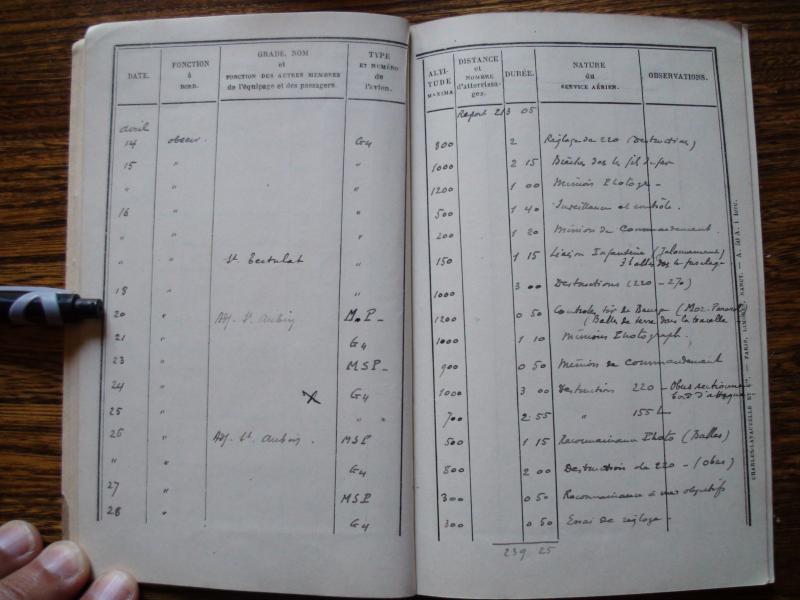 DATE.
FONCTION
à
BORD.
GRADE, NOM
et
FONCTION DES AUTRES MEMBRES
de l'équipage et des passagers.
TYPE
ET NUMÉRO
de
l'avion.
avril
14 obser. G4
15 " "
" " "
16 " "
" " "
" " St
18 " "
20 " Adj. St. Aubin M.P_
21 " G4
23 " MSP_
24 " X G4
25 " " "
26 " Adj. St. Aubin. MSP
" " G4
27 " MSP
28 " G4
ALTI-
TUDE
MAXIMA
DISTANCE
et
NOMBRE
d'atterrissa-
ges.
DURÉE.
NATURE
du
SERVICE AÉRIEN.
OBSERVATIONS.
Report 213 05
800 2 Réglage de 220 (Destruction)
1000 2 15 Brèches ds le fil de fer
1200 1 00 Mission Photogr -
500 1 40 Surveillance et contrôle.
200 1 20 Mission de Commandement.
150 1 15 Liaison Infanterie (Jalonnement)
3 balles ds le fuselage
1000 3 00 Destructions (220 - 270)
1200 0 50 Contrôle tir de
(Balles de terre dans la
1000 1 10 Missions Photograph.
900 0 50 Mission de commandement
1000 3 00 Destruction 220 - Obus
bord d'attaque
700 2 55 " 155 L
500 1 15 Reconnaissance Photo (Balles)
800 2 00 Destruction de 220 - (Obus)
300 0 50 Reconnaissance à vue objectifs
300 0 50 Essai de réglage -
239 25
CHARLES-LAVAUZELLE ET Cie. — PARIS, LIMOGES, NANCY. — A. 50 A. 1 Loc.